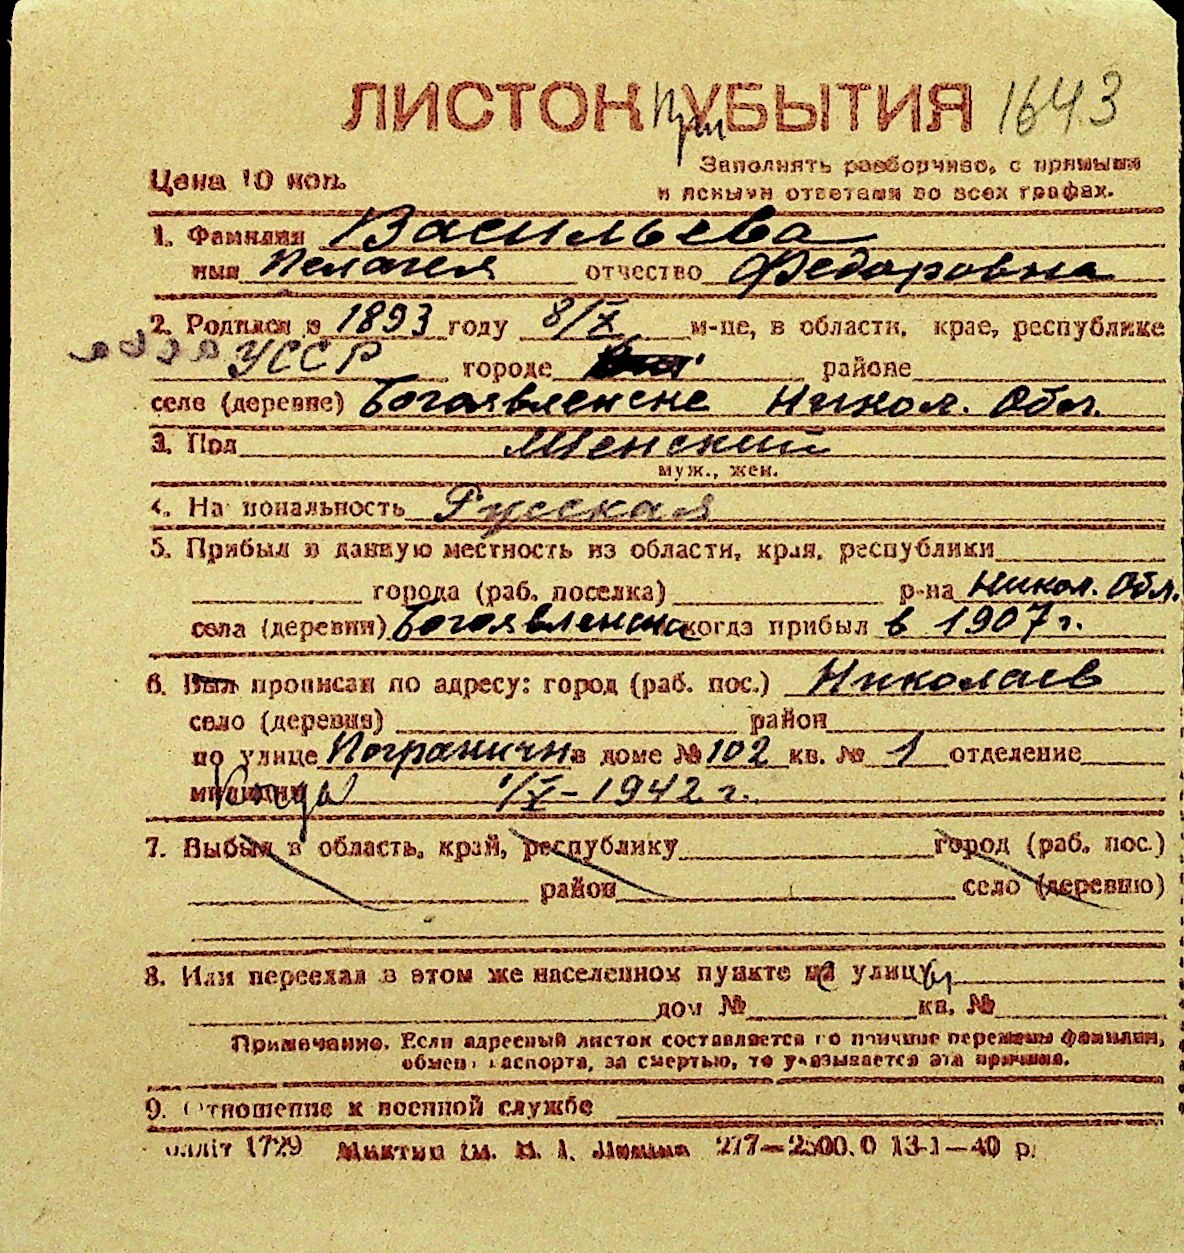 ЛИСТОК При УБЫТИЯ 1643
Цена 10 коп.
Заполнять разборчиво, с прямыми
и ясными ответами во всех графах.
1. Фамилия Васильева
имя Пелагея отчество Федоровна
2. Родился в 1893 году 8/X м-це, в области, крае, республике
УССР городе районе
селе (деревне) Богоявленске Никол. Обл.
3. Пол Женский
муж., жен.
4. Национальность Русская
5. Прибыл в данную местность из области, края, республики
города (раб. поселка) р-на Никол. Обл.
села (деревни) Богоявленска когда прибыл в 1907 г.
6. Был прописан по адресу: город (раб. пос.) Николаев
село (деревня) район
по улице Погранични в доме № 102 кв. № 1 отделение
милиции Когда 1/V-1942 г.
7. Выбыл в область, край, республику город (раб. пос.)
район село (деревню)
8. Или переехал в этом же населенном пункте на улицу
дом № кв. №
Примечание. Если адресный листок составляется по причине перемены фамилии,
обмена паспорта, за смертью, то указывается эта причина.
9. Отношение к военной службе
1729 277—2500.0 13-1—40 р.